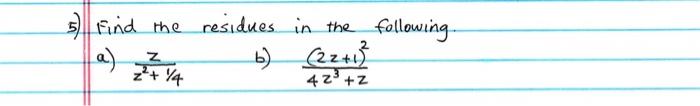 5) Find the residues in the following.
a) z/(z²+1/4) b) (2z+1)²/(4z³+z)